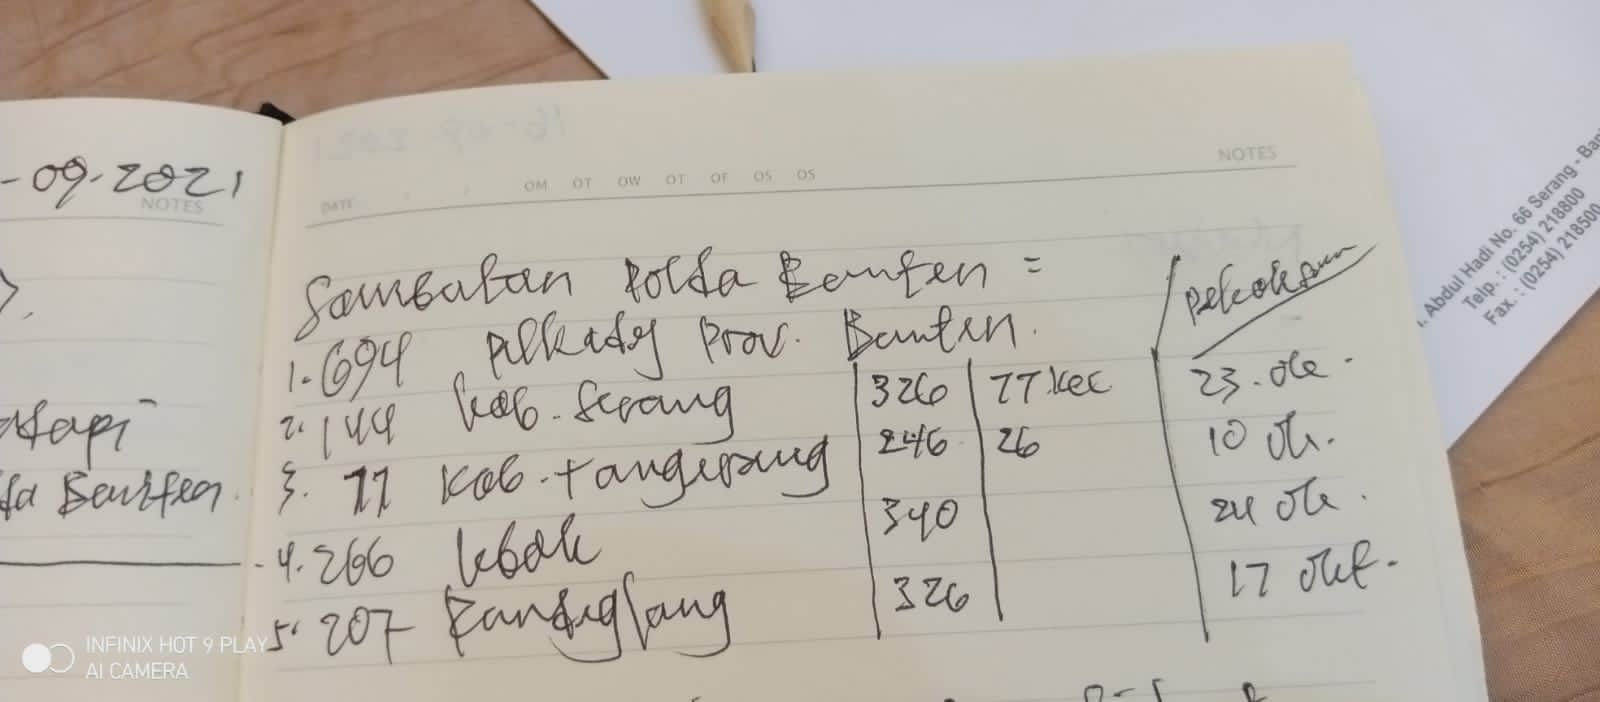 -09-2021
NOTES
atapi
da Banten
DATE
OM OT OW OT OF OS OS
NOTES
Sambutan Polda Banten =
1. 694 pilkades Prov. Banten.
2. 144 Kab. Serang 326 77 kec 23. Okt.
3. 77 Kab. Tangerang 246 26 10 Okt.
4. 266 Lebak 340 24 Okt.
5. 207 Pandeglang 326 17 Okt.
. Abdul Hadi No. 66 Serang - Ban
Telp.: (0254) 218800
Fax.: (0254) 218500
INFINIX HOT 9 PLAY
AI CAMERA